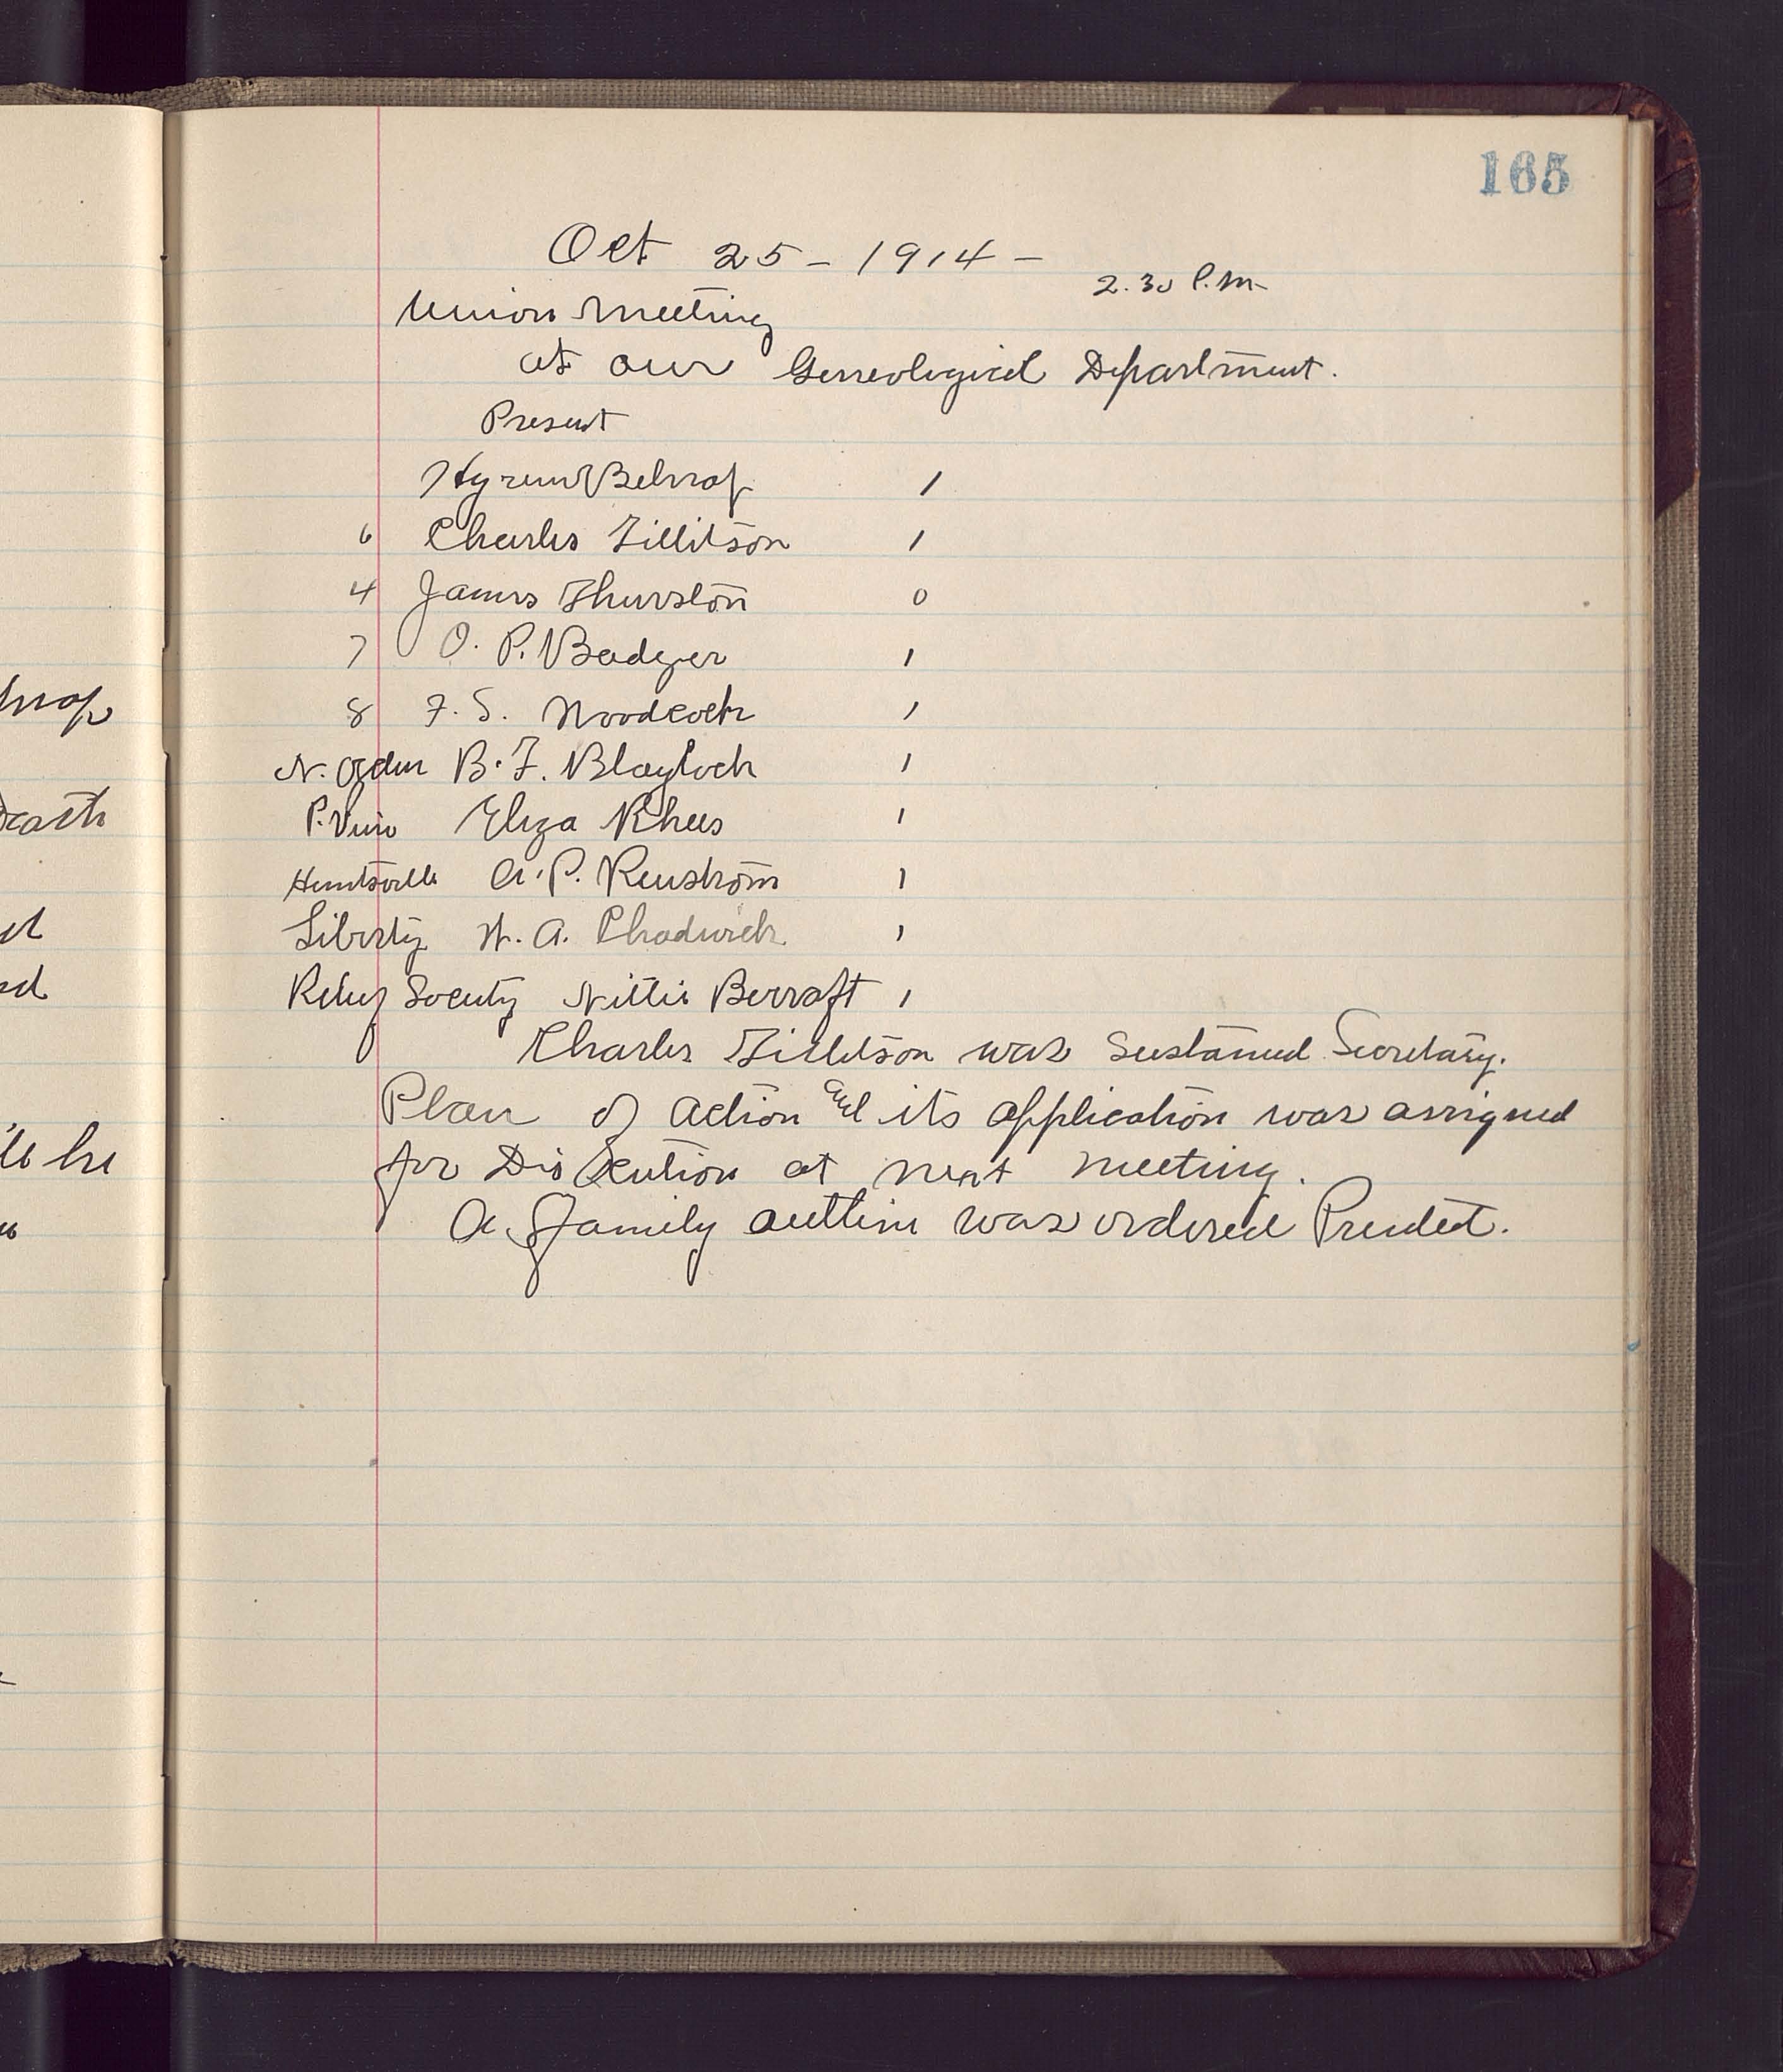 165
Oct 25 - 1914 -
2.30 P.M-
Union Meeting
at our Geneological Department.
Present
Hyrum Belnap 1
6 Charles Tillitson 1
4 James Thurston 0
7 O. P. Badger 1
8 F. S. Woodcock 1
N. Ogden B. F. Blaylock 1
P. View Eliza Rhees 1
Huntsville A. P. Renstrom 1
Liberty W. A. Chadwick 1
Relief Society Nettie Becraft 1
Charles Tillitson was Sustained Secretary.
Plan of Action and its application was assigned
for Discution at next meeting.
A family outline was ordered Printed.